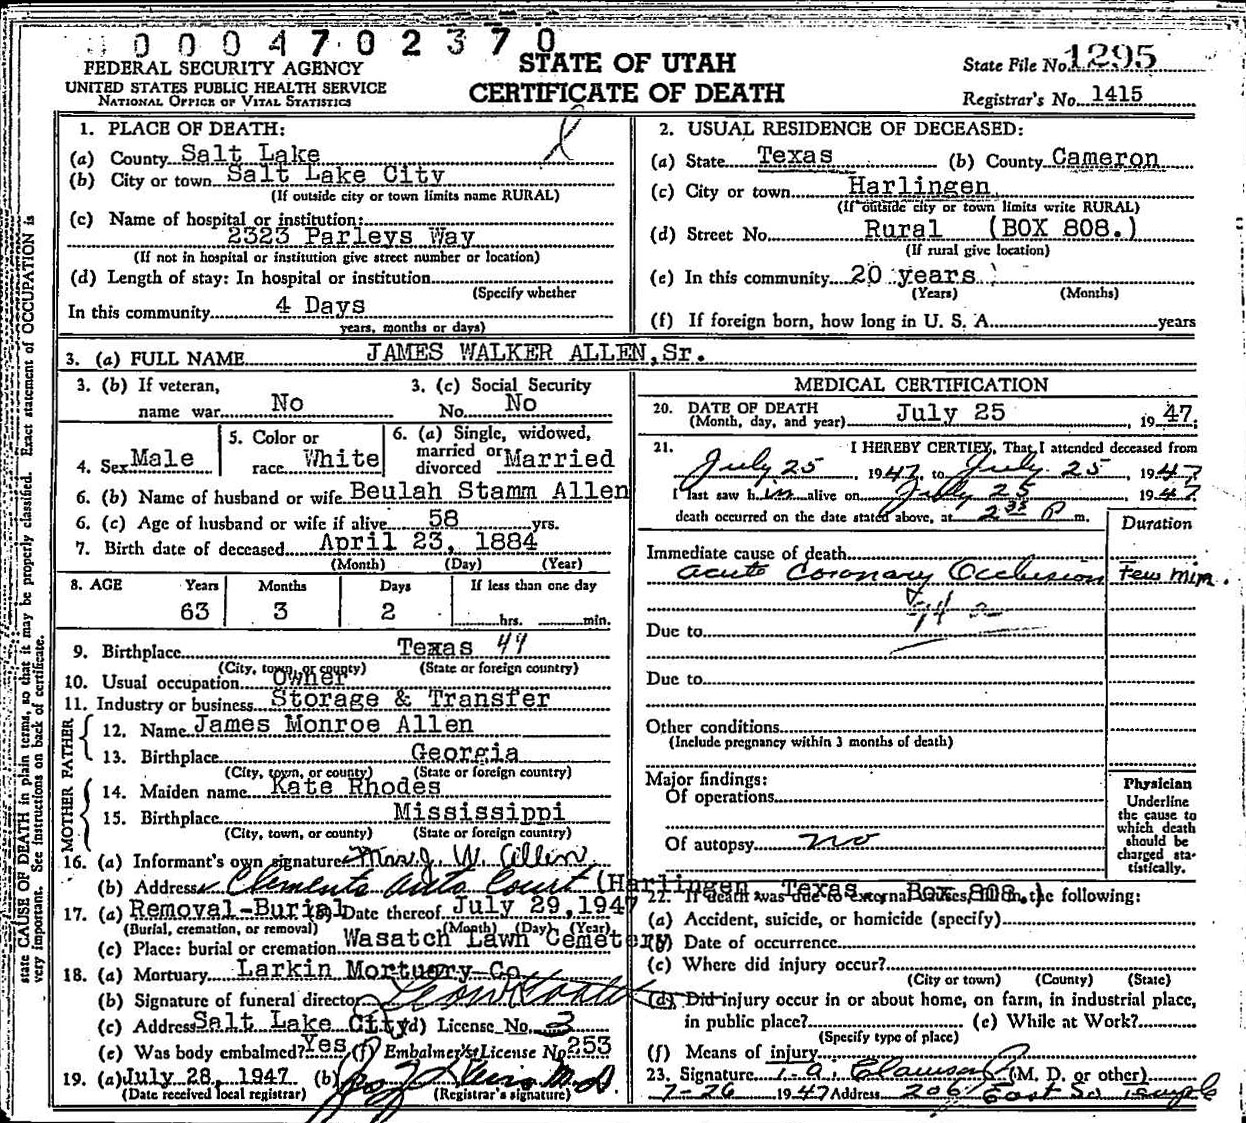 0004702370
FEDERAL SECURITY AGENCY
UNITED STATES PUBLIC HEALTH SERVICE
NATIONAL OFFICE OF VITAL STATISTICS
STATE OF UTAH
CERTIFICATE OF DEATH
State File No. 1295
Registrar's No. 1415
1. PLACE OF DEATH:
(a) County Salt Lake
(b) City or town Salt Lake City
(If outside city or town limits name RURAL)
(c) Name of hospital or institution:
2323 Parleys Way
(If not in hospital or institution give street number or location)
(d) Length of stay: In hospital or institution
(Specify whether
In this community 4 Days
years, months or days)
2. USUAL RESIDENCE OF DECEASED:
(a) State Texas (b) County Cameron
(c) City or town Harlingen
(If outside city or town limits write RURAL)
(d) Street No. Rural (BOX 808.)
(If rural give location)
(e) In this community 20 years
(Years) (Months)
(f) If foreign born, how long in U. S. A. years
3. (a) FULL NAME JAMES WALKER ALLEN, Sr.
3. (b) If veteran, name war No
3. (c) Social Security No. No
4. Sex Male
5. Color or race White
6. (a) Single, widowed, married or divorced Married
6. (b) Name of husband or wife Beulah Stamm Allen
6. (c) Age of husband or wife if alive 58 yrs.
7. Birth date of deceased April 23, 1884
(Month) (Day) (Year)
8. AGE Years Months Days If less than one day
63 3 2 hrs. min.
9. Birthplace Texas 44
(City, town, or county) (State or foreign country)
10. Usual occupation Owner
11. Industry or business Storage & Transfer
FATHER
12. Name James Monroe Allen
13. Birthplace Georgia
(City, town, or county) (State or foreign country)
MOTHER
14. Maiden name Kate Rhodes
15. Birthplace Mississippi
(City, town, or county) (State or foreign country)
16. (a) Informant's own signature Mrs. J. W. Allen
(b) Address Clements Auto Court (Harlingen, Texas. Box 808.)
17. (a) Removal-Burial (b) Date thereof July 29, 1947
(Burial, cremation, or removal) (Month) (Day) (Year)
(c) Place: burial or cremation Wasatch Lawn Cemetery
18. (a) Mortuary Larkin Mortuary Co
(b) Signature of funeral director
(c) Address Salt Lake City (d) License No. 3
(e) Was body embalmed? Yes (f) Embalmer's License No. 253
19. (a) July 28, 1947 (b) M D
(Date received local registrar) (Registrar's signature)
MEDICAL CERTIFICATION
20. DATE OF DEATH
(Month, day, and year) July 25, 1947.
21. I HEREBY CERTIFY, That I attended deceased from
July 25, 1947, to July 25 1947
I last saw him alive on July 25, 1947
death occurred on the date stated above, at 2 35 P m.
Duration
Immediate cause of death
Acute Coronary Occlusion Few min.
94 a
Due to
Due to
Other conditions
(Include pregnancy within 3 months of death)
Major findings:
Of operations
Of autopsy no
Physician
Underline
the cause to
which death
should be
charged sta-
tistically.
22. If death was due to external causes, fill in the following:
(a) Accident, suicide, or homicide (specify)
(b) Date of occurrence
(c) Where did injury occur?
(City or town) (County) (State)
(d) Did injury occur in or about home, on farm, in industrial place,
in public place? (e) While at Work?
(Specify type of place)
(f) Means of injury
23. Signature T. A. Clawson (M. D. or other)
7-26 1947 Address 206 East So Temple
state CAUSE OF DEATH in plain terms, so that it may be properly classified. Exact statement of OCCUPATION is
very important. See instructions on back of certificate.